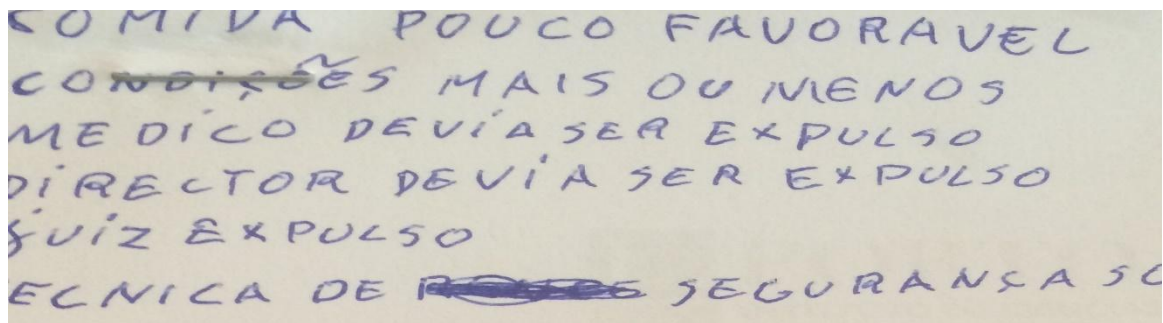 COMIDA POUCO FAVORAVEL
CONDIÇÕES MAIS OU MENOS
MEDICO DEVIA SER EXPULSO
DIRECTOR DEVIA SER EXPULSO
JUIZ EXPULSO
ECNICA DE SEGURANÇA SO